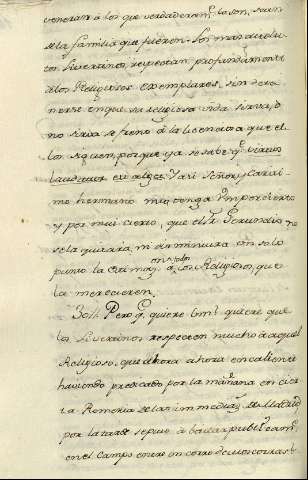 veneran à los que verdaderam.te lo son, sean
de la familia que fueren. Los mas disolu
tos Luteranos, respetan profundamente
à los Religiosos exemplares, sin dete
nerse en que su religiosa vida sirva, ò
no sirva de freno à la licenciosa que el
los siguen, porque ya se sabe q.e virtus
laudatur et alget. Y asi Señor, y Carisi
mo hermano mio, tenga Vm por cierto
y por mui cierto, que el Fr. Gerundio no
se la quitará, ni disminuirá en solo
punto la estimaz.n à los Religiosos, que
la merecieren.
Pero q.e quiere Vm? quiere que
los Luteranos respeten mucho à aquel
Religioso, que ahora ahora en caliente
haviendo predicado por la mañana en cier
ta Romeria de las inmediaz.s de Madrid
por la tarde se puso à bailar public.am.te
en el campo entre un corro de